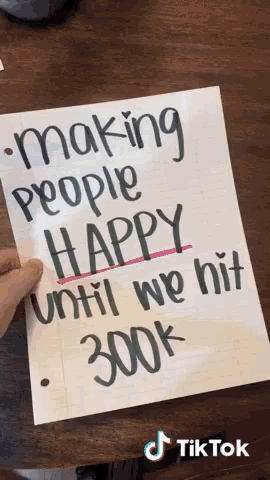 making
people
HAPPY
until we hit
300k
TikTok